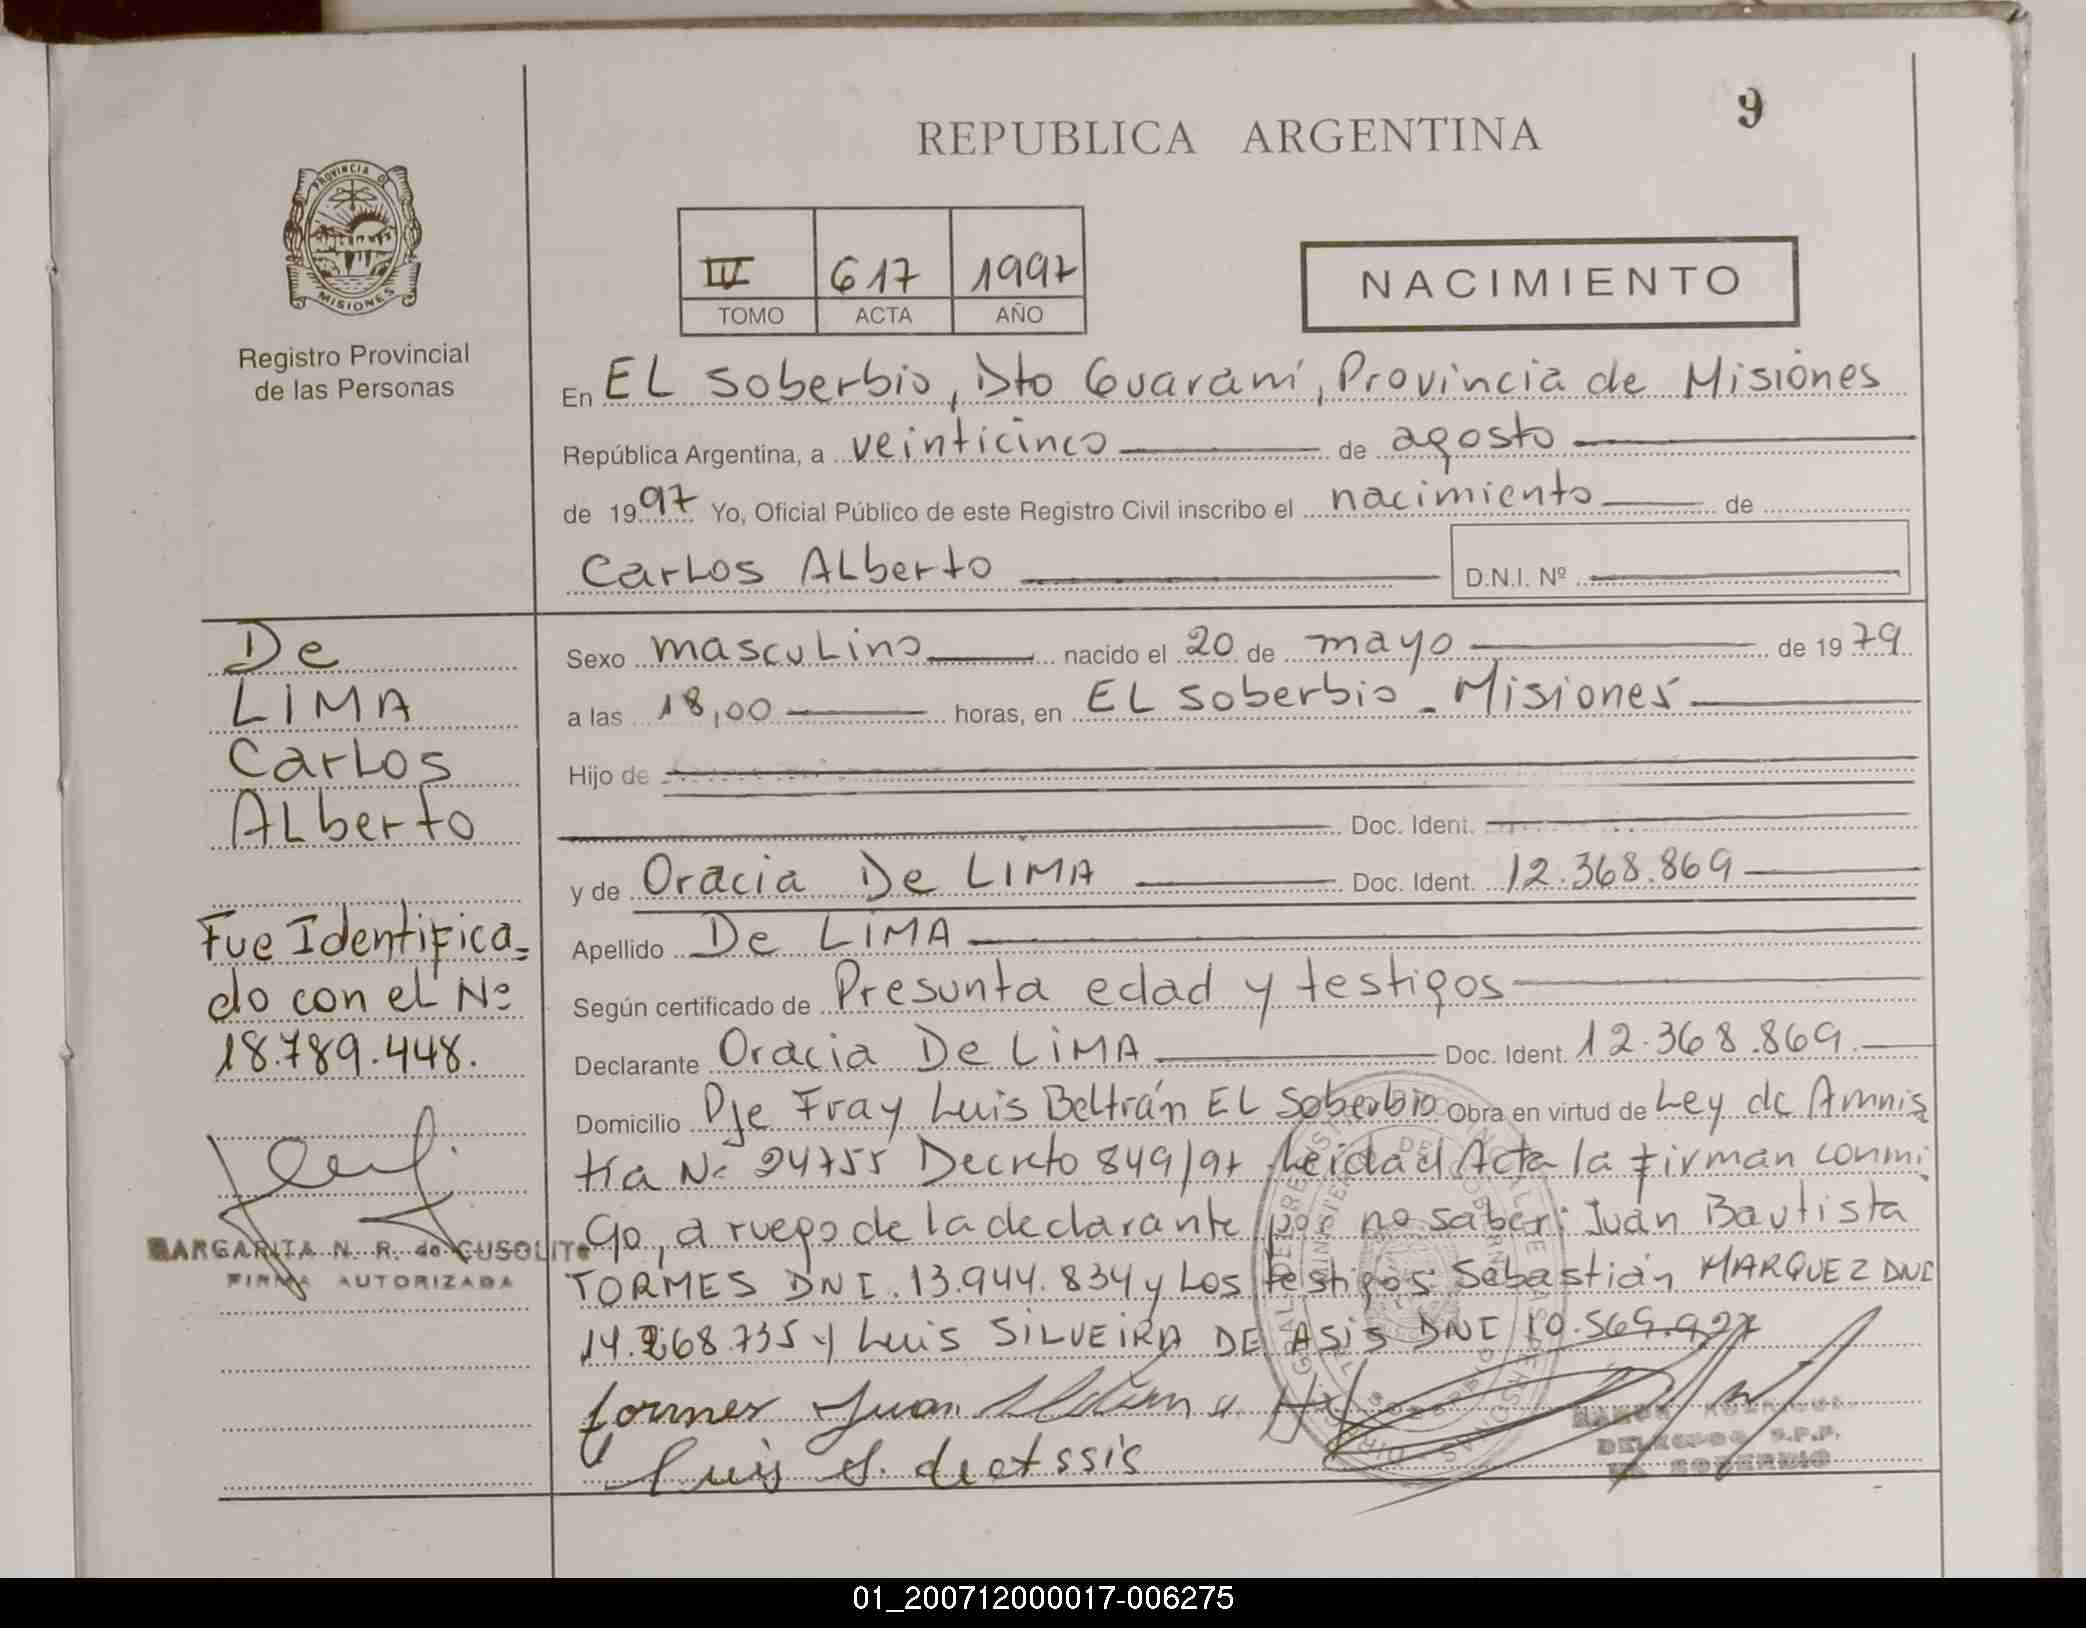 9
REPUBLICA ARGENTINA
PROVINCIA DE
MISIONES
Registro Provincial
de las Personas
IV 617 1997
TOMO ACTA AÑO
NACIMIENTO
En EL Soberbio, Dto Guaraní, Provincia de Misiones
República Argentina, a veinticinco de agosto
de 1997 Yo, Oficial Público de este Registro Civil inscribo el nacimiento de
Carlos Alberto D.N.I. Nº
De
LIMA
Carlos
Alberto
Fue Identifica-
do con el Nº
18.789.448.
MARGARITA N. R. de CUSOLITO
FIRMA AUTORIZADA
Sexo masculino nacido el 20 de mayo de 1979
a las 18,00 horas, en EL Soberbio - Misiones
Hijo de
Doc. Ident.
y de Oracia De LIMA Doc. Ident. 12.368.869
Apellido De LIMA
Según certificado de Presunta edad y testigos
Declarante Oracia De LIMA Doc. Ident. 12.368.869.
Domicilio Pje Fray Luis Beltrán EL Soberbio Obra en virtud de Ley de Amnis
tía Nº 24755 Decreto 849/97 Leida el Acta la firman conmi
go, a ruego de la declarante por no saber: Juan Bautista
TORMES DNI. 13.944.834 y Los testigos Sebastián MARQUEZ DNI
14.268.735 y Luis SILVEIRA DE ASIS DNI 10.569.927
tormes Juan
Luis S. de Assis
EL SOBERBIO
01_200712000017-006275